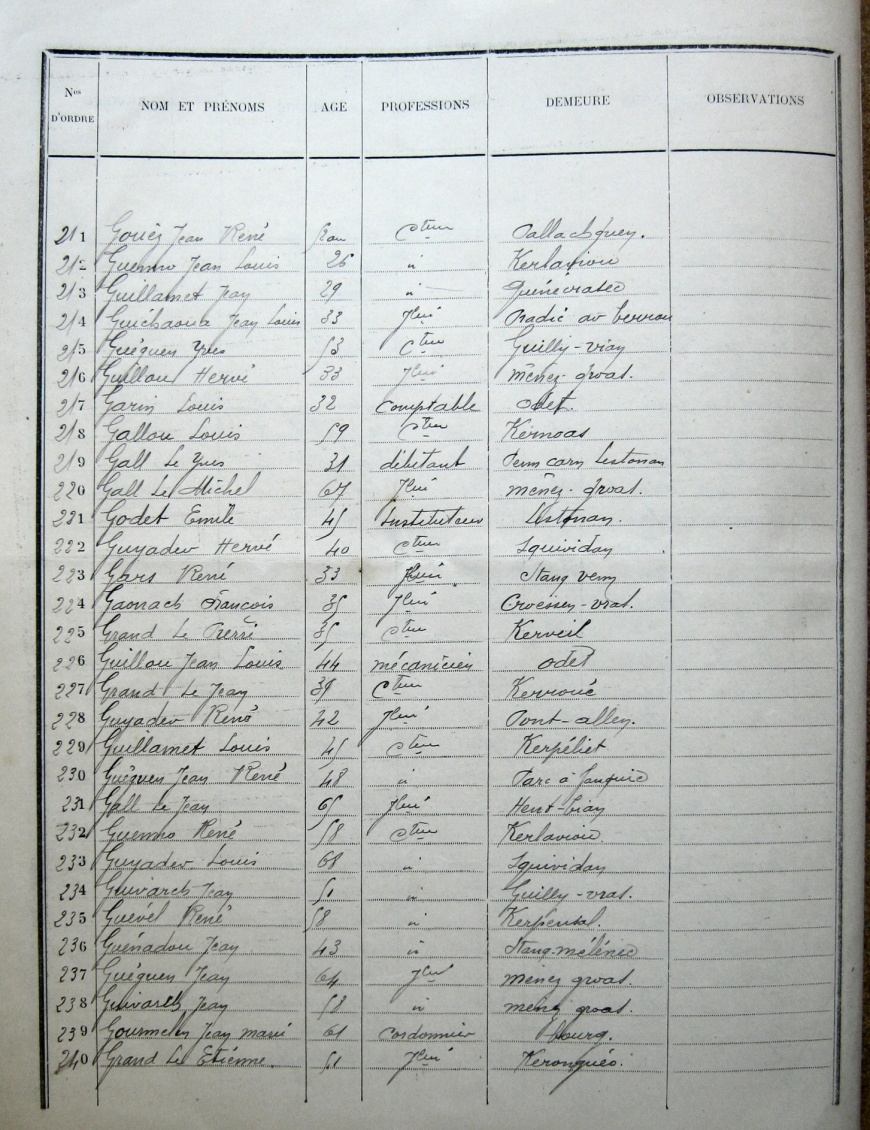 Nos D'ORDRE NOM ET PRÉNOMS AGE PROFESSIONS DEMEURE OBSERVATIONS
211 Gouéz Jean René Cteur
212 Guenno Jean Louis 26 " Kerlaviou
213 Guillamet Jean 29 " Quénécadec
214 Guichaoua Jean Louis 33 Jlier Pradic
215 Guéguen Yves 53 Cteur Guilly-vian
216 Guillou Hervé 33 Jlier ménez-groas.
217 Garin Louis 32 comptable odet.
218 Gallou Louis 59 Cteur Kernoas
219 Gall Le Yves 31 débitant Penn carn Lestonan
220 Gall Le Michel 67 Jlier ménez-groas.
221 Godet Emile 45 Instituteur Lestonan.
222 Guyader Hervé 40 Cteur Squividan
223 Gars René 33 Jlier Stang venn
224 Gaonach François 35 Jlier Croessen-vras.
225 Grand Le Pierre 35 Cteur Kerveil
226 Guillou Jean Louis 44 mécanicien odet
227 Grand Le Jean 39 Cteur Kerroué
228 Guyader René 42 Jlier Pont-allen.
229 Guillamet Louis 45 Cteur Kerpéliet
230 Guéguen Jean René 48 " Parc a
231 Gall Le Jean 65 Jlier Hent-bian
232 Guenno René 58 Cteur Kerlaviou
233 Guyader Louis 68 " Squividan
234 Guivarch Jean 51 " Guilly-vras.
235 Guével René 58 "
236 Guénadou Jean 43 " Stang-mélénec
237 Guéguen Jean 64 Jlier ménez groas.
238 Guivarch Jean 58 " ménez groas.
239 Gourmelen Jean marie 61 cordonnier bourg.
240 Grand Le Etienne. 51 Jlier Keronguéo.